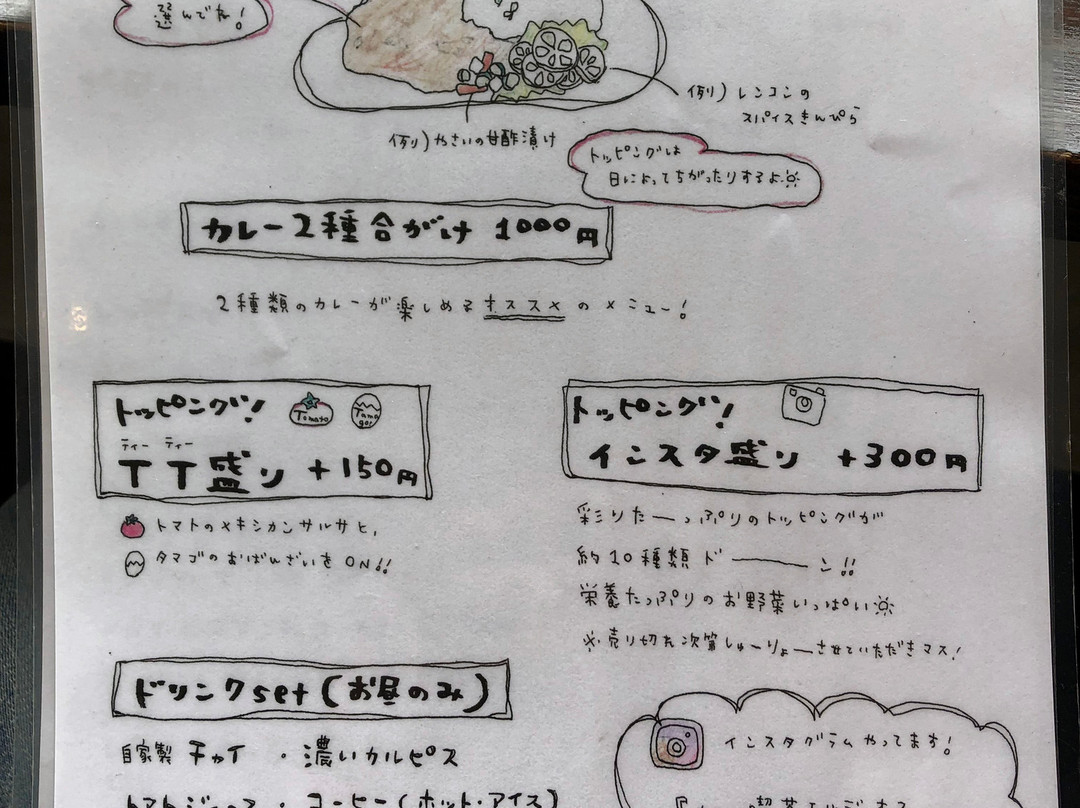 選んでね!
例) レンコンの
スパイスきんぴら
例) やさいの甘酢漬け
トッピングは
日によってちがったりするよ
カレー2種合がけ 1000円
2種類のカレーが楽しめるオススメのメニュー!
トッピング! Tomato Tamago!
ティー ティー
TT盛り +150円
トマトのメキシカンサルサと、
タマゴのおばんざいをON!!
トッピング!
インスタ盛り +300円
彩りた―っぷりのトッピングが
約10種類ド――ン!!
栄養たっぷりのお野菜いっぱい
※売り切れ次第しゅーりょーさせていただきマス!
ドリンクset(お昼のみ)
自家製チャイ ・濃いカルピス
トマトジュース ・コーヒー(ホット・アイス)
インスタグラムやってます!